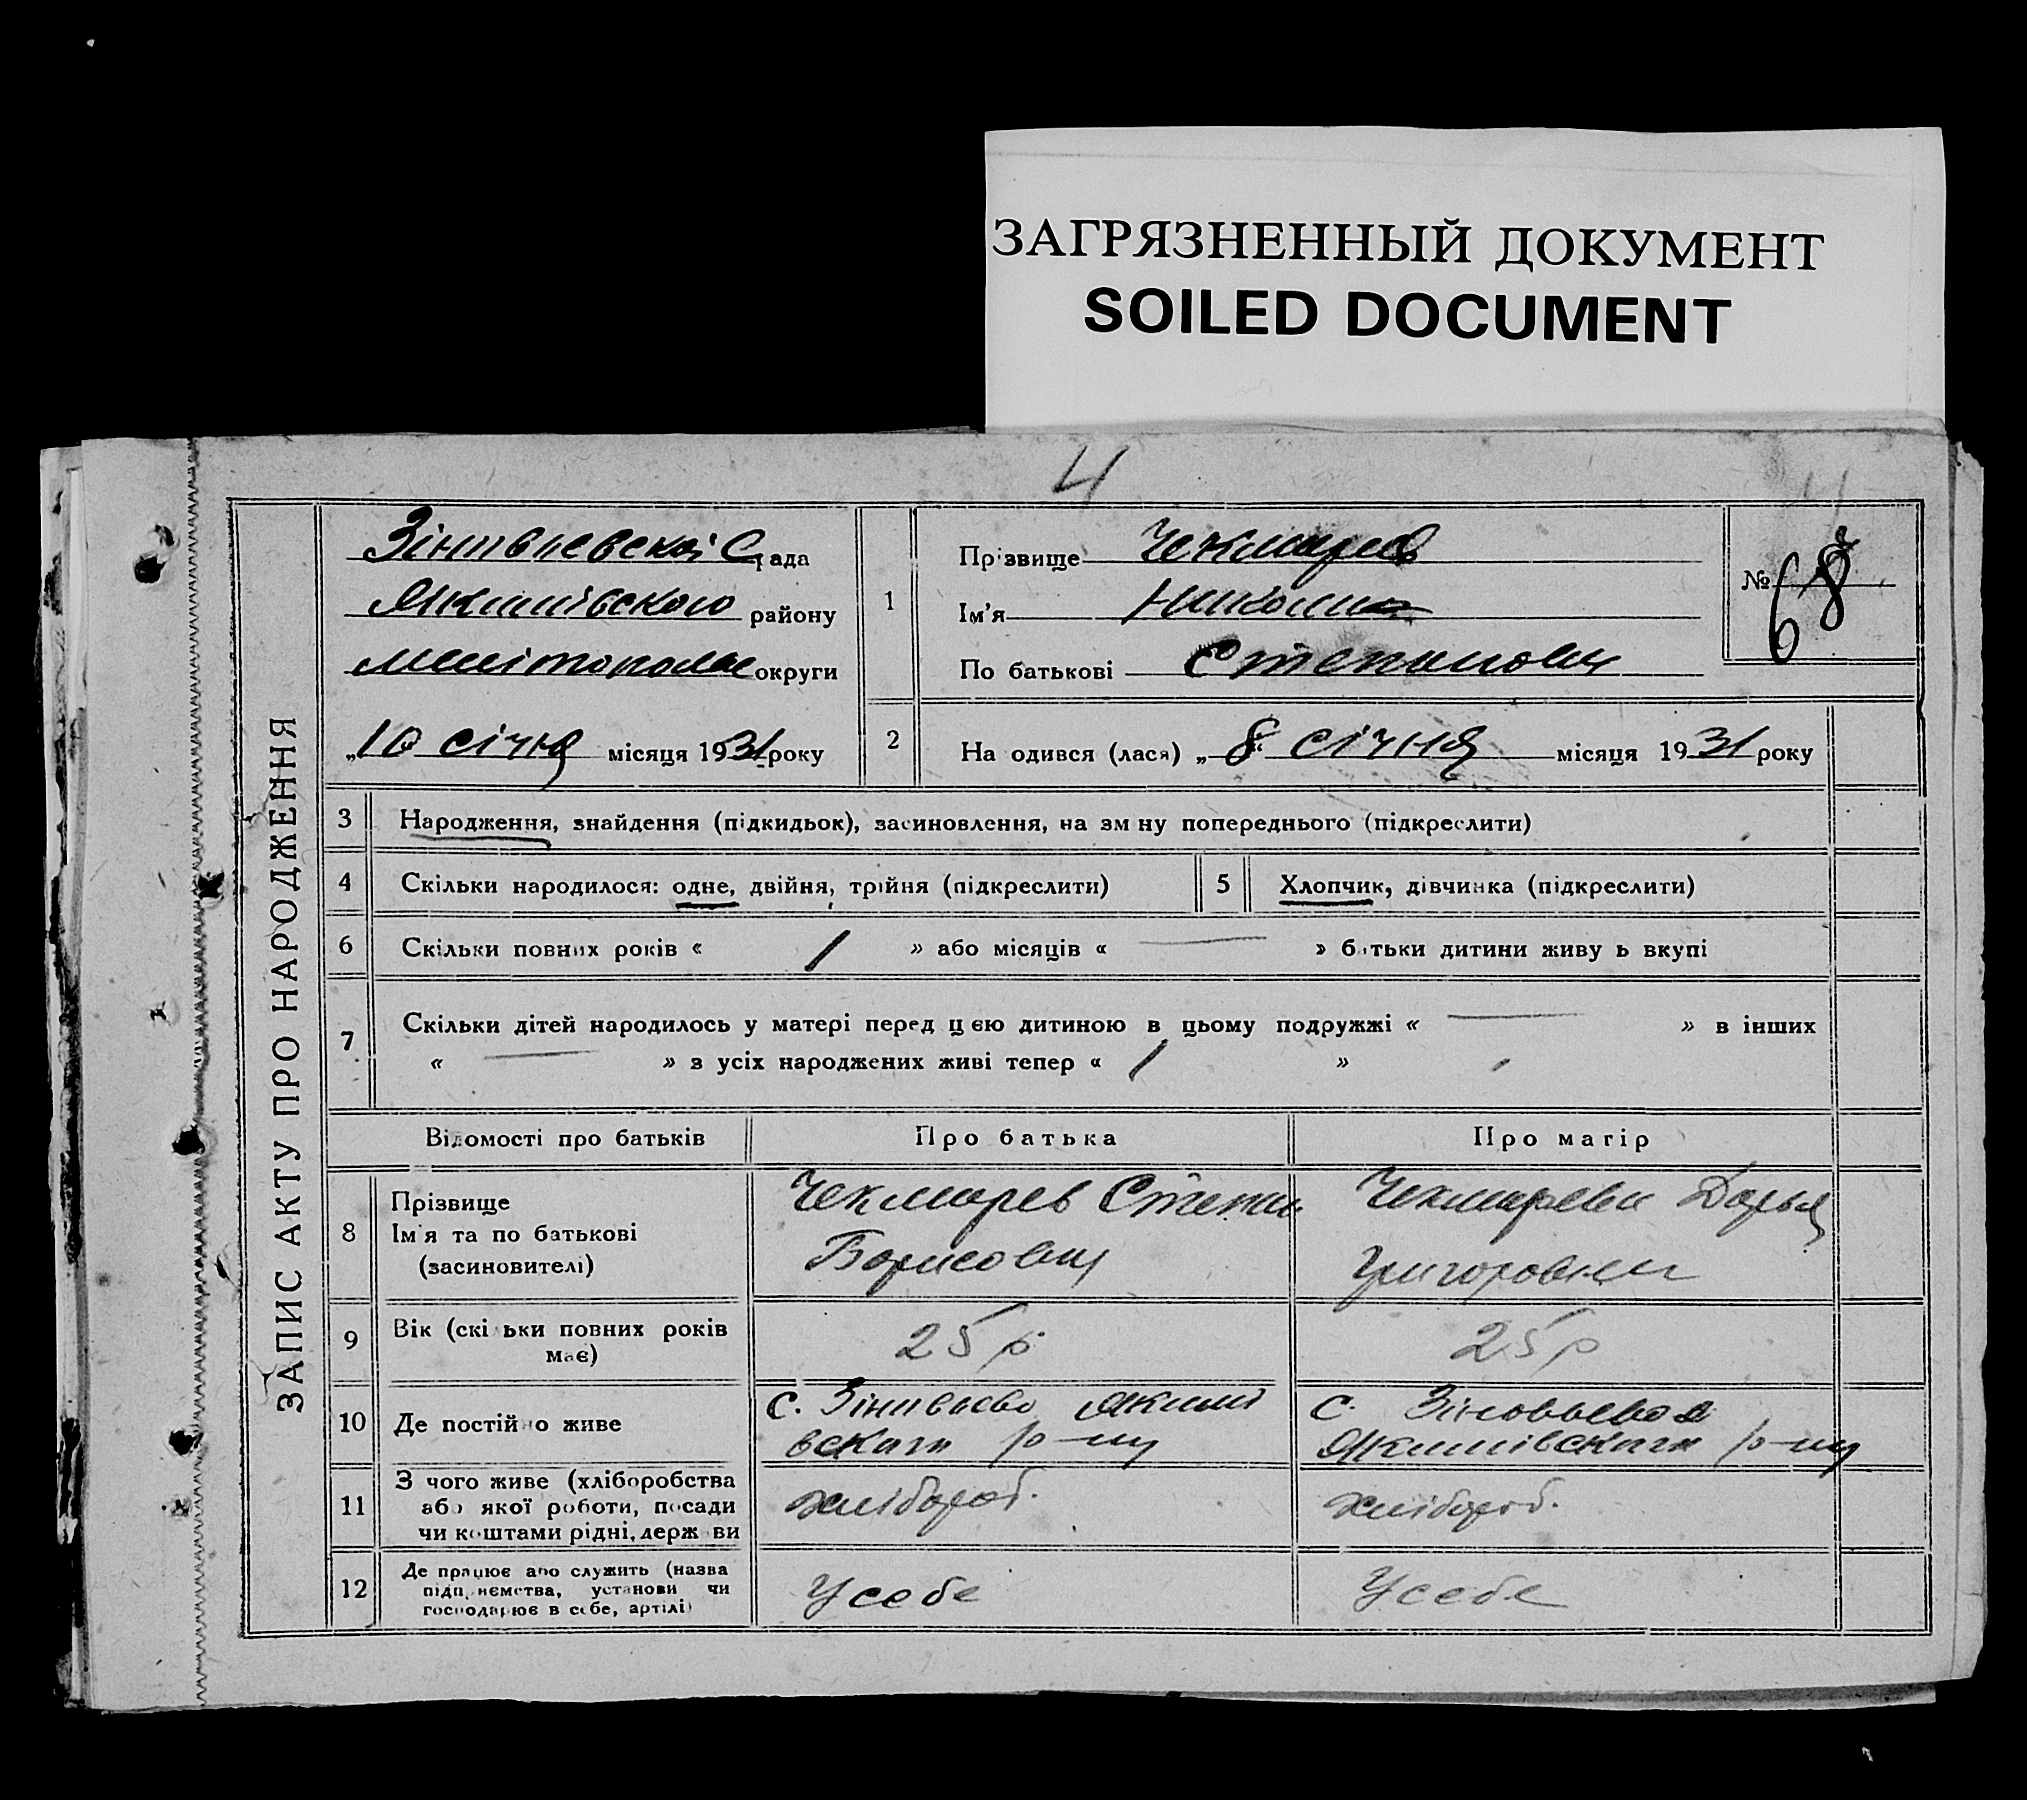 ЗАГРЯЗНЕННЫЙ ДОКУМЕНТ
SOILED DOCUMENT
4
ЗАПИС АКТУ ПРО НАРОДЖЕННЯ
Зіновьевскої С рада
Якимівского району
округи
„10 січня місяця 1931 року
1
Прізвище Чекмарев
Ім'я Николай
По батькові Степанович
№
2
На одився (лася) „8" січня місяця 1931 року
3 Народження, знайдення (підкидьок), засиновлення, на зм ну попереднього (підкреслити)
4 Скільки народилося: одне, двійня, трійня (підкреслити)
5 Хлопчик, дівчинка (підкреслити)
6 Скільки повних років « 1 » або місяців « — » батьки дитини живу ь вкупі
7 Скільки дітей народилось у матері перед цією дитиною в цьому подружжі « — » в інших
« — » з усіх народжених живі тепер « 1 »
Відомості про батьків
Про батька
Про матір
8 Прізвище
Ім'я та по батькові
(засиновителі)
Чекмарев Степан
Борисович
Чекмарева Дарья
Григоровна
9 Вік (скі ьки повних років
має)
25 р.
25 р
10 Де постійно живе
с. Зіновьево Якимі
вского р-ну
с. Зіновьево
Якимівского р-ну
11 З чого живе (хліборобства
або якої роботи, посади
чи коштами рідні, держ ви
хлібороб.
хлібороб.
12 Де працює або служить (назва
підприємства, установи чи
господарює в себе, артілі)
У себе
У себе